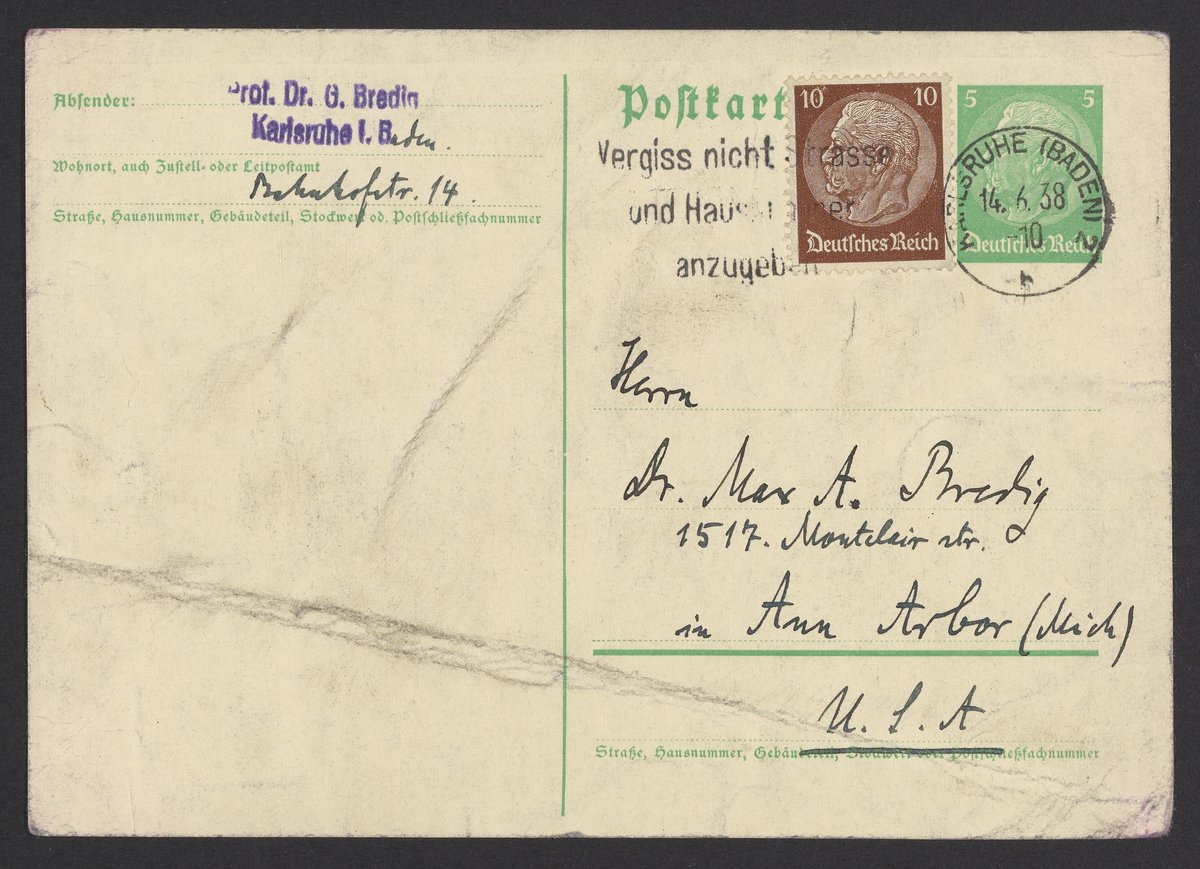 Absender:
Prof. Dr. G. Bredig
Karlsruhe i. Baden.
Wohnort, auch Zustell- oder Leitpostamt
Bahnhofstr. 14.
Straße, Hausnummer, Gebäudeteil, Stockwerk od. Postschließfachnummer
Postkart
10 10
Deutsches Reich
5 5
Deutsches Reich
Vergiss nicht Strasse
und Hausnummer
anzugeben
KARLSRUHE (BADEN) 2
14.6.38
-10
h
Herrn
Dr. Max A. Bredig
1517. Montclair str.
in Ann Arbor (Mich)
U.S.A
Straße, Hausnummer, Gebäudeteil, Stockwerk oder Postschließfachnummer